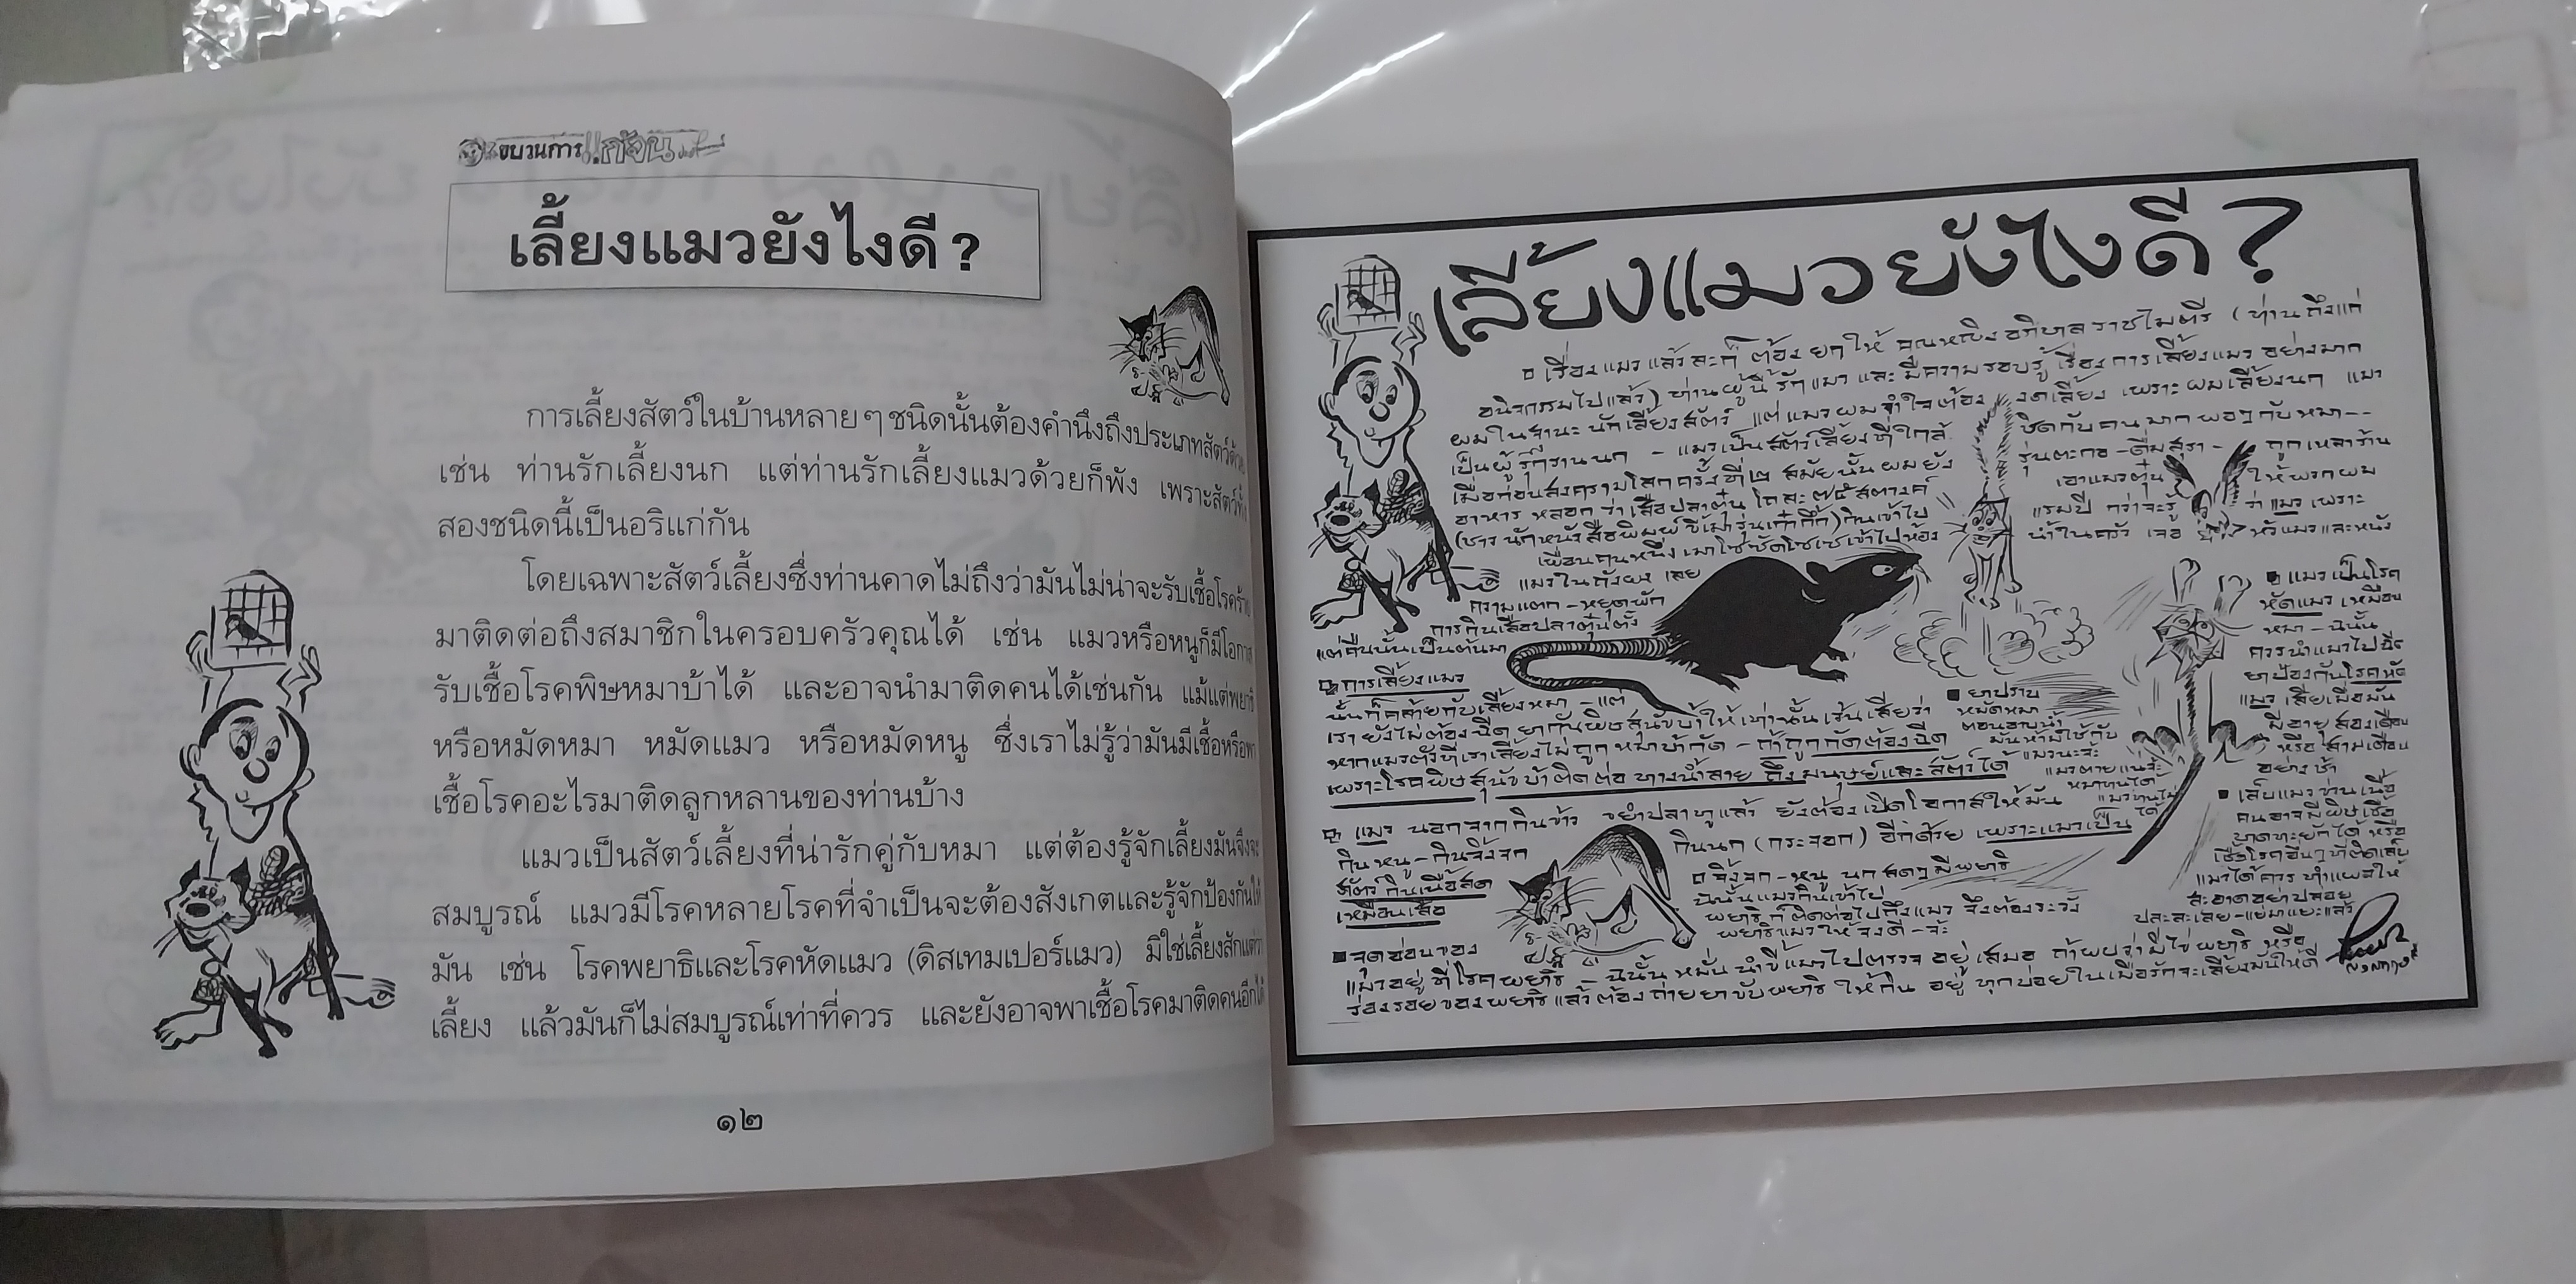 ขบวนการแก้จน
เลี้ยงแมวยังไงดี ?
การเลี้ยงสัตว์ในบ้านหลาย ๆ ชนิดนั้นต้องคำนึงถึงประเภทสัตว์ด้วย
เช่น ท่านรักเลี้ยงนก แต่ท่านรักเลี้ยงแมวด้วยก็พัง เพราะสัตว์ทั้ง
สองชนิดนี้เป็นอริแก่กัน
โดยเฉพาะสัตว์เลี้ยงซึ่งท่านคาดไม่ถึงว่ามันไม่น่าจะรับเชื้อโรคร้าย
มาติดต่อถึงสมาชิกในครอบครัวคุณได้ เช่น แมวหรือหนูก็มีโอกาส
รับเชื้อโรคพิษหมาบ้าได้ และอาจนำมาติดคนได้เช่นกัน แม้แต่พยาธิ
หรือหมัดหมา หมัดแมว หรือหมัดหนู ซึ่งเราไม่รู้ว่ามันมีเชื้อหรือพา
เชื้อโรคอะไรมาติดลูกหลานของท่านบ้าง
แมวเป็นสัตว์เลี้ยงที่น่ารักคู่กับหมา แต่ต้องรู้จักเลี้ยงมันจึงจะ
สมบูรณ์ แมวมีโรคหลายโรคที่จำเป็นจะต้องสังเกตและรู้จักป้องกันให้
มัน เช่น โรคพยาธิและโรคหัดแมว (ดิสเทมเปอร์แมว) มิใช่เลี้ยงสักแต่ว่า
เลี้ยง แล้วมันก็ไม่สมบูรณ์เท่าที่ควร และยังอาจพาเชื้อโรคมาติดคนอีกได้
๑๒
เลี้ยงแมวยังไงดี?
เรื่องแมวแล้วละก็ ต้องยกให้ คุณหญิง ราชไมตรี (ท่านถึงแก่
อนิจกรรมไปแล้ว) ท่านผู้นี้รักแมว และมีความรอบรู้เรื่องการเลี้ยงแมวอย่างมาก
ผมในฐานะ นักเลี้ยงสัตว์ แต่แมวผมจำใจต้อง งดเลี้ยง เพราะผมเลี้ยงนก แมว
เป็นผู้รุกรานนก - แมวเป็นสัตว์เลี้ยงที่ใกล้ ชิดกับคนมากพอๆกับหมา--
เมื่อก่อนสงครามโลกครั้งที่ ๒ สมัยนั้นผมยัง รุ่นตะกอ - ดื่มสุรา - ถูกเหลาร้าน
อาหาร หลอกว่าเสือปลาตุ๋น โถละ ๗๕ สตางค์ เอาแมวตุ๋น ให้พวกผม
(ชาวนักหนังสือพิมพ์ขี้เมารุ่นเก๋ากึ๊ก) กินเข้าไป แรมปี กว่าจะรู้ ว่าแมว เพราะ
เพื่อนคนหนึ่งเมาโซซัดโซเซเข้าไปห้อง น้ำในครัว เจอ หัวแมวและหนัง
แมวในถังผง เลย
ความแตก - หยุดพัก
การกินเสือปลาตุ๋นตั้ง
แต่คืนนั้นเป็นต้นมา
การเลี้ยงแมว
นั้นก็คล้ายกับเลี้ยงหมา - แต่
เรายังไม่ต้องฉีดยากันพิษสุนัขบ้าให้เท่านั้น เว้นเสียว่า
หากแมวตัวที่เราเลี้ยงไม่ถูกหมาบ้ากัด - ถ้าถูกกัดต้องฉีด
เพราะโรคพิษสุนัขบ้าติดต่อทางน้ำลาย ถึงมนุษย์และสัตว์ได้
ยาปราบ
หมัดหมา
ตอนอาบน้ำ
มันห้ามใช้กับ
แมวนะจ๊ะ
แมวตายแน่จ้ะ
หมาทนได้
แมวทนไม่
ได้
แมวเป็นโรค
หัดแมว เหมือน
หมา - ฉะนั้น
ควรนำแมวไปฉีด
ยาป้องกันโรคหัด
แมว เสียเมื่อมัน
มีอายุ สองเดือน
หรือ สามเดือน
อย่างช้า
เล็บแมวข่วนเนื้อ
คนอาจมีพิษเชื้อ
บาดทะยักได้ หรือ
เชื้อโรคอื่นๆที่ติดเล็บ
แมวได้ควร ทำแผลให้
สะอาดอย่าปล่อย
ปละละเลย - แย่มาเยอะแล้ว
แมว นอกจากกินข้าว ขยำปลาทูแล้ว ยังต้องเปิดโอกาสให้มัน
กินหนู - กินจิ้งจก กินนก (กระจอก) อีกด้วย เพราะแมวเป็น
สัตว์กินเนื้อสด
เหมือนเสือ
จิ้งจก - หนู นก สดๆ มีพยาธิ
ฉะนั้นแมวกินเข้าไป
พยาธิก็ติดต่อไปถึงแมว จึงต้องระวัง
พยาธิแมวให้จงดี - จ้ะ
จุดอ่อนของ
แมวอยู่ที่โรคพยาธิ - ฉะนั้น หมั่นนำขี้แมวไปตรวจ อยู่เสมอ ถ้าพบว่ามีไข่พยาธิ หรือ
ร่องรอยของพยาธิแล้วต้องถ่ายยาขับพยาธิ ให้กิน อยู่ ทุกบ่อยในเมื่อรักจะเลี้ยงมันให้ดี